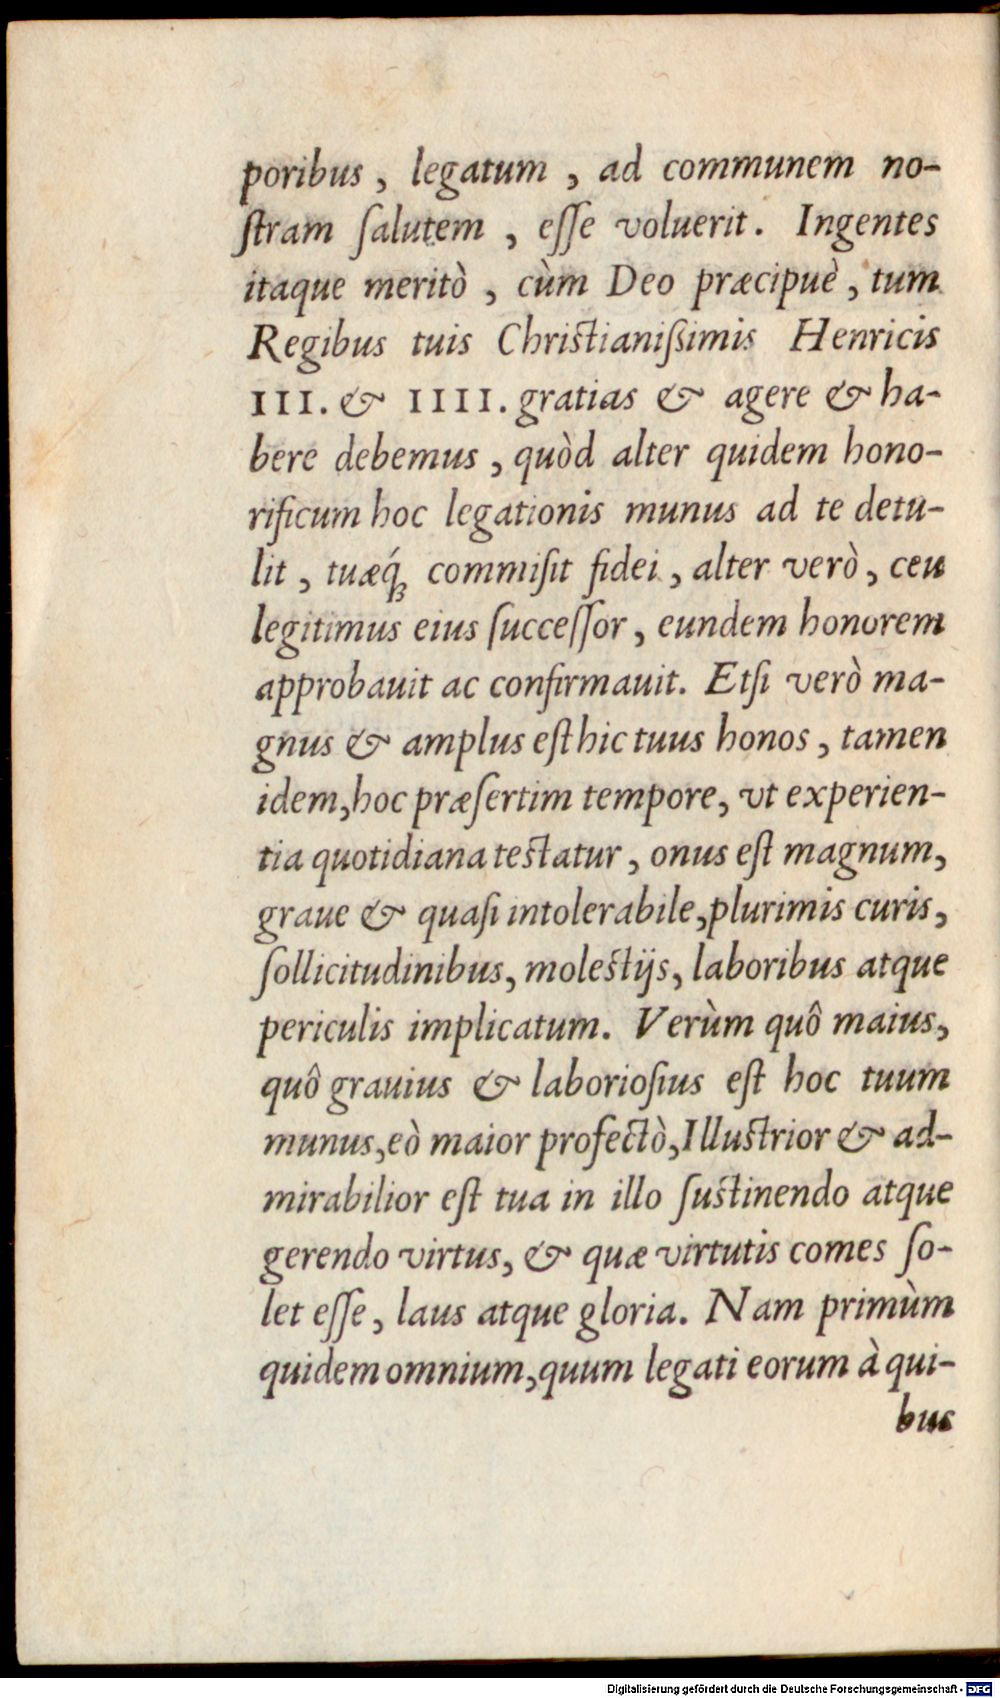 poribus, legatum, ad communem no-
ſtram ſalutem, eſſe voluerit. Ingentes
itaque meritò, cùm Deo præcipuè, tum
Regibus tuis Chriſtianiſſimis Henricis
III. & IIII. gratias & agere & ha-
bere debemus, quòd alter quidem hono-
rificum hoc legationis munus ad te detu-
lit, tuæq́ꝫ commiſit fidei, alter verò, ceu
legitimus eius ſucceſſor, eundem honorem
approbauit ac confirmauit. Etſi verò ma-
gnus & amplus eſt hic tuus honos, tamen
idem, hoc præſertim tempore, vt experien-
tia quotidiana teſtatur, onus eſt magnum,
graue & quaſi intolerabile, plurimis curis,
ſollicitudinibus, moleſtijs, laboribus atque
periculis implicatum. Verùm quô maius,
quô grauius & laborioſius eſt hoc tuum
munus, eò maior profectò, Illuſtrior & ad-
mirabilior eſt tua in illo ſuſtinendo atque
gerendo virtus, & quæ virtutis comes ſo-
let eſſe, laus atque gloria. Nam primùm
quidem omnium, quum legati eorum à qui-
bus
Digitalisierung gefördert durch die Deutsche Forschungsgemeinschaft - DFG